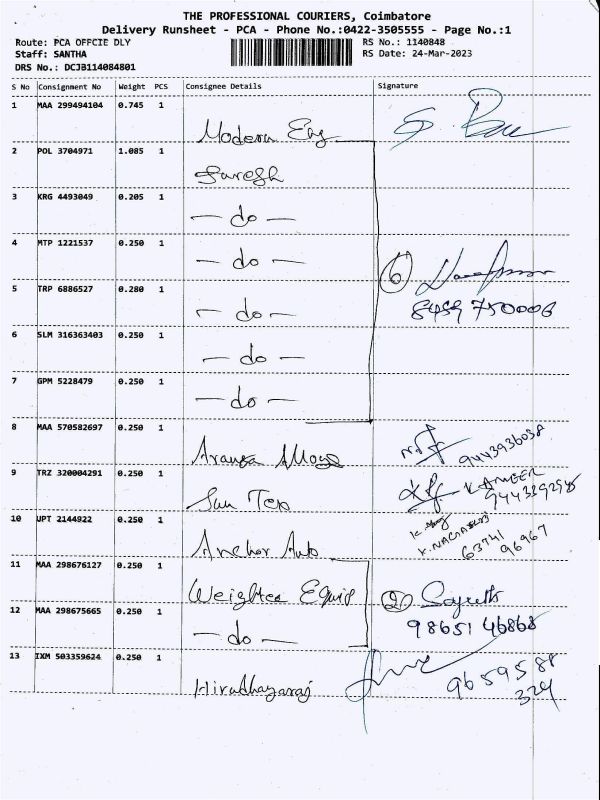 THE PROFESSIONAL COURIERS, Coimbatore
Delivery Runsheet - PCA - Phone No.:0422-3505555 - Page No.:1
Route: PCA OFFCIE DLY
Staff: SANTHA
DRS No.: DCJB114084801
RS No.: 1140848
RS Date: 24-Mar-2023
S No Consignment No Weight PCS Consignee Details Signature
1 MAA 299494104 0.745 1
Modern Eng
2 POL 3704971 1.085 1
Suresh
3 KRG 4493049 0.205 1
— do —
4 MTP 1221537 0.250 1
— do — 6
5 TRP 6886527 0.280 1
— do —
6 SLM 316363403 0.250 1
— do —
7 GPM 5228479 0.250 1
— do —
8 MAA 570582697 0.250 1
9443936038
9 TRZ 320004291 0.250 1
Sun Tex
10 UPT 2144922 0.250 1
Anchor Auto 63741 96967
11 MAA 298676127 0.250 1
Equip 2
12 MAA 298675665 0.250 1
— do — 98651 46868
13 IXM 503359624 0.250 1
9659588
324